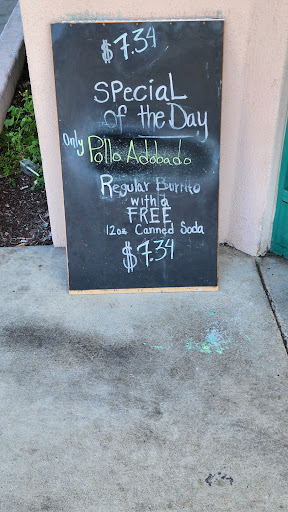 $7.34
SPeciaL
of the Day
Only Pollo Adobado
Regular Burrito
with a
FREE
12oz Canned Soda
$7.34